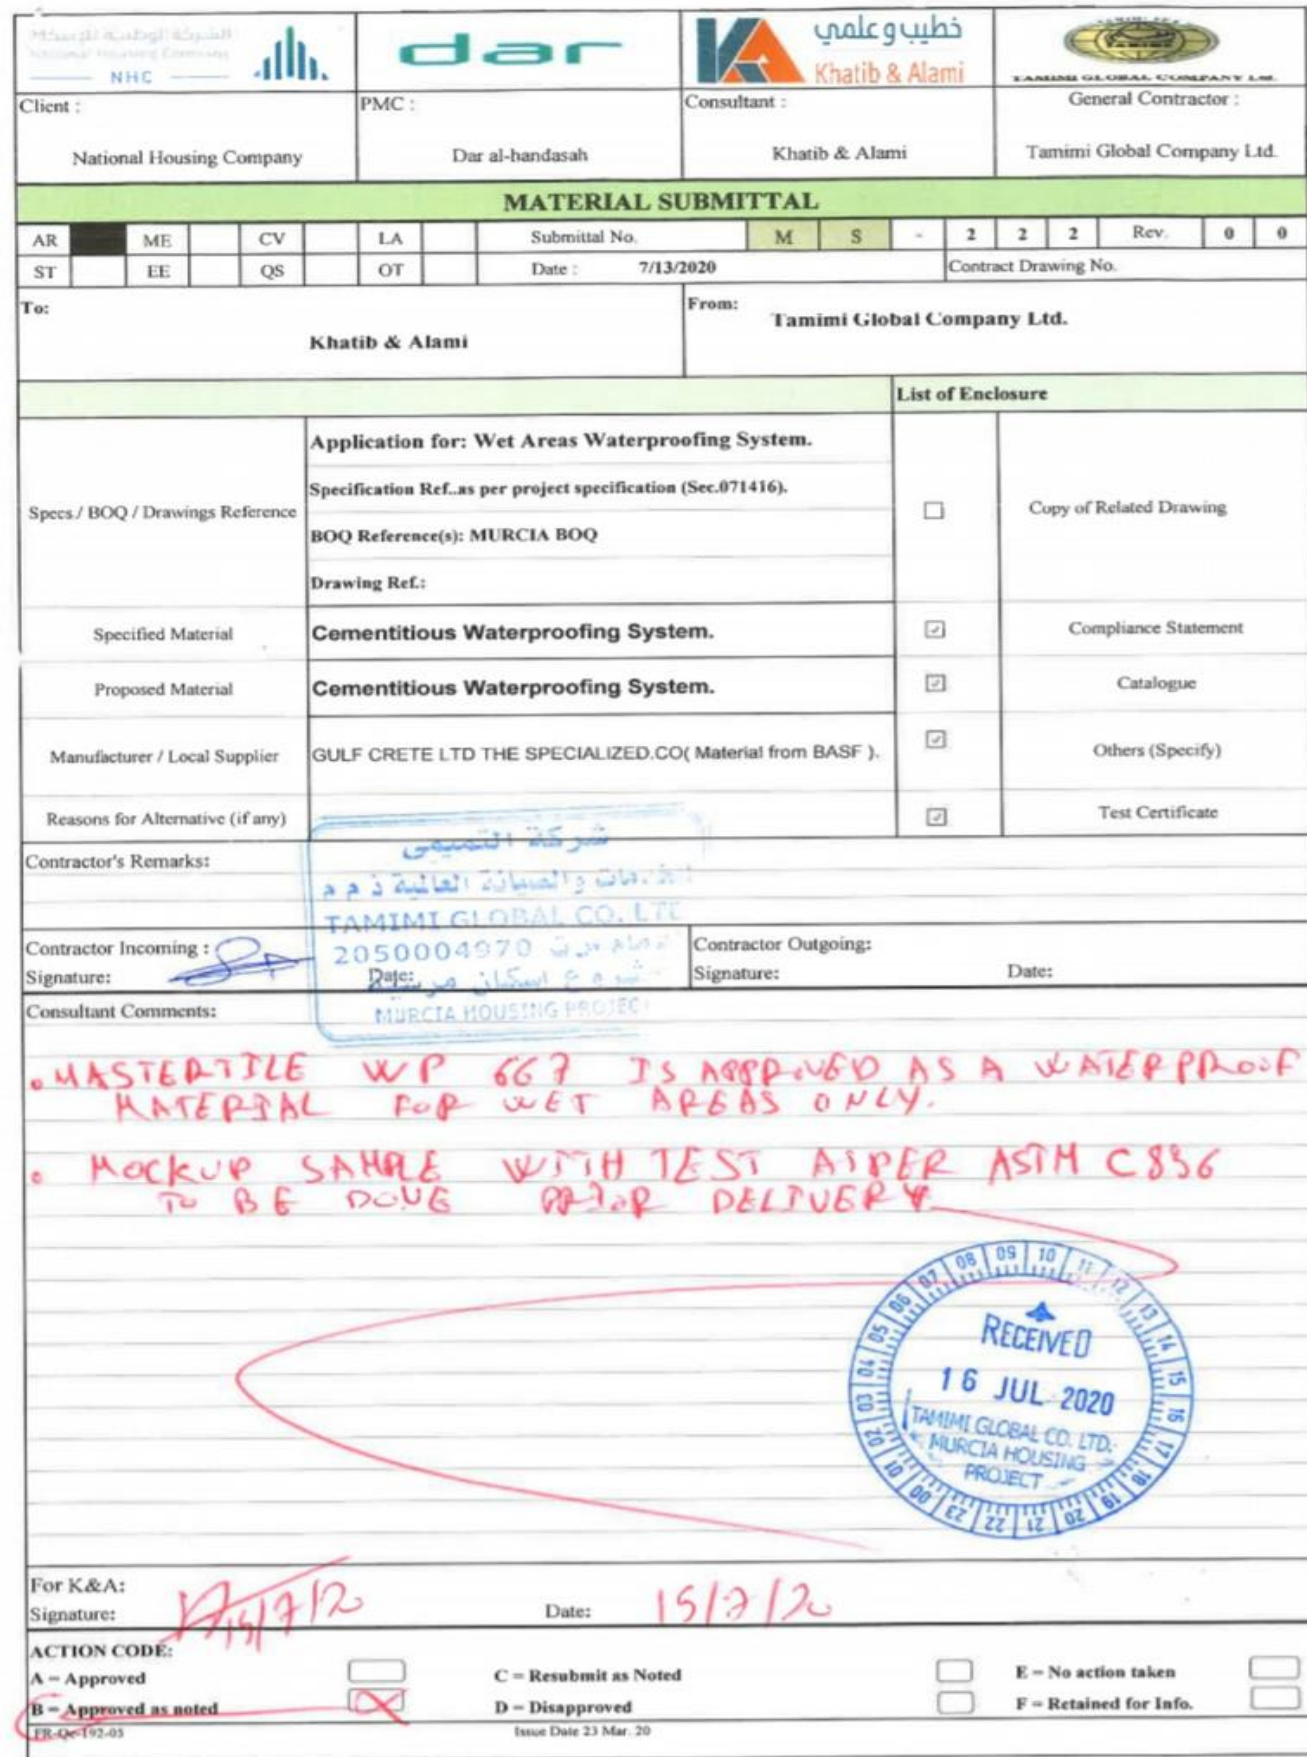 الشركة الوطنية للإسكان
National Housing Company
NHC
dar
خطيب وعلمي
Khatib & Alami
TAMIMI
TAMIMI GLOBAL COMPANY Ltd.
Client :
National Housing Company
PMC :
Dar al-handasah
Consultant :
Khatib & Alami
General Contractor :
Tamimi Global Company Ltd.
MATERIAL SUBMITTAL
AR ME CV LA Submittal No. M S - 2 2 2 Rev. 0 0
ST EE QS OT Date : 7/13/2020 Contract Drawing No.
To:
Khatib & Alami
From:
Tamimi Global Company Ltd.
List of Enclosure
Specs./ BOQ / Drawings Reference
Application for: Wet Areas Waterproofing System.
Specification Ref..as per project specification (Sec.071416).
BOQ Reference(s): MURCIA BOQ
Drawing Ref.:
Copy of Related Drawing
Specified Material Cementitious Waterproofing System. Compliance Statement
Proposed Material Cementitious Waterproofing System. Catalogue
Manufacturer / Local Supplier GULF CRETE LTD THE SPECIALIZED.CO( Material from BASF ). Others (Specify)
Reasons for Alternative (if any) Test Certificate
Contractor's Remarks:
شركة التميمى
للخدمات والصيانة العالمية ذ م م
TAMIMI GLOBAL CO. LTD
2050004970
مشروع اسكان مرسية
MURCIA HOUSING PROJECT
Contractor Incoming :
Signature: Date:
Contractor Outgoing:
Signature: Date:
Consultant Comments:
• MASTERTILE WP 667 IS APPROVED AS A WATERPROOF
MATERIAL FOR WET AREAS ONLY.
• MOCKUP SAMPLE WITH TEST AS PER ASTM C836
TO BE DONE PRIOR DELIVERY
00 01 02 03 04 05 06 07 08 09 10 11 12 13 14 15 16 17 18 19 20 21 22 23
RECEIVED
16 JUL 2020
TAMIMI GLOBAL CO. LTD.
MURCIA HOUSING
PROJECT
For K&A:
Signature: 15/7/20 Date: 15/7/20
ACTION CODE:
A = Approved C = Resubmit as Noted E = No action taken
B = Approved as noted D = Disapproved F = Retained for Info.
FR-Qc-192-05 Issue Date 23 Mar. 20